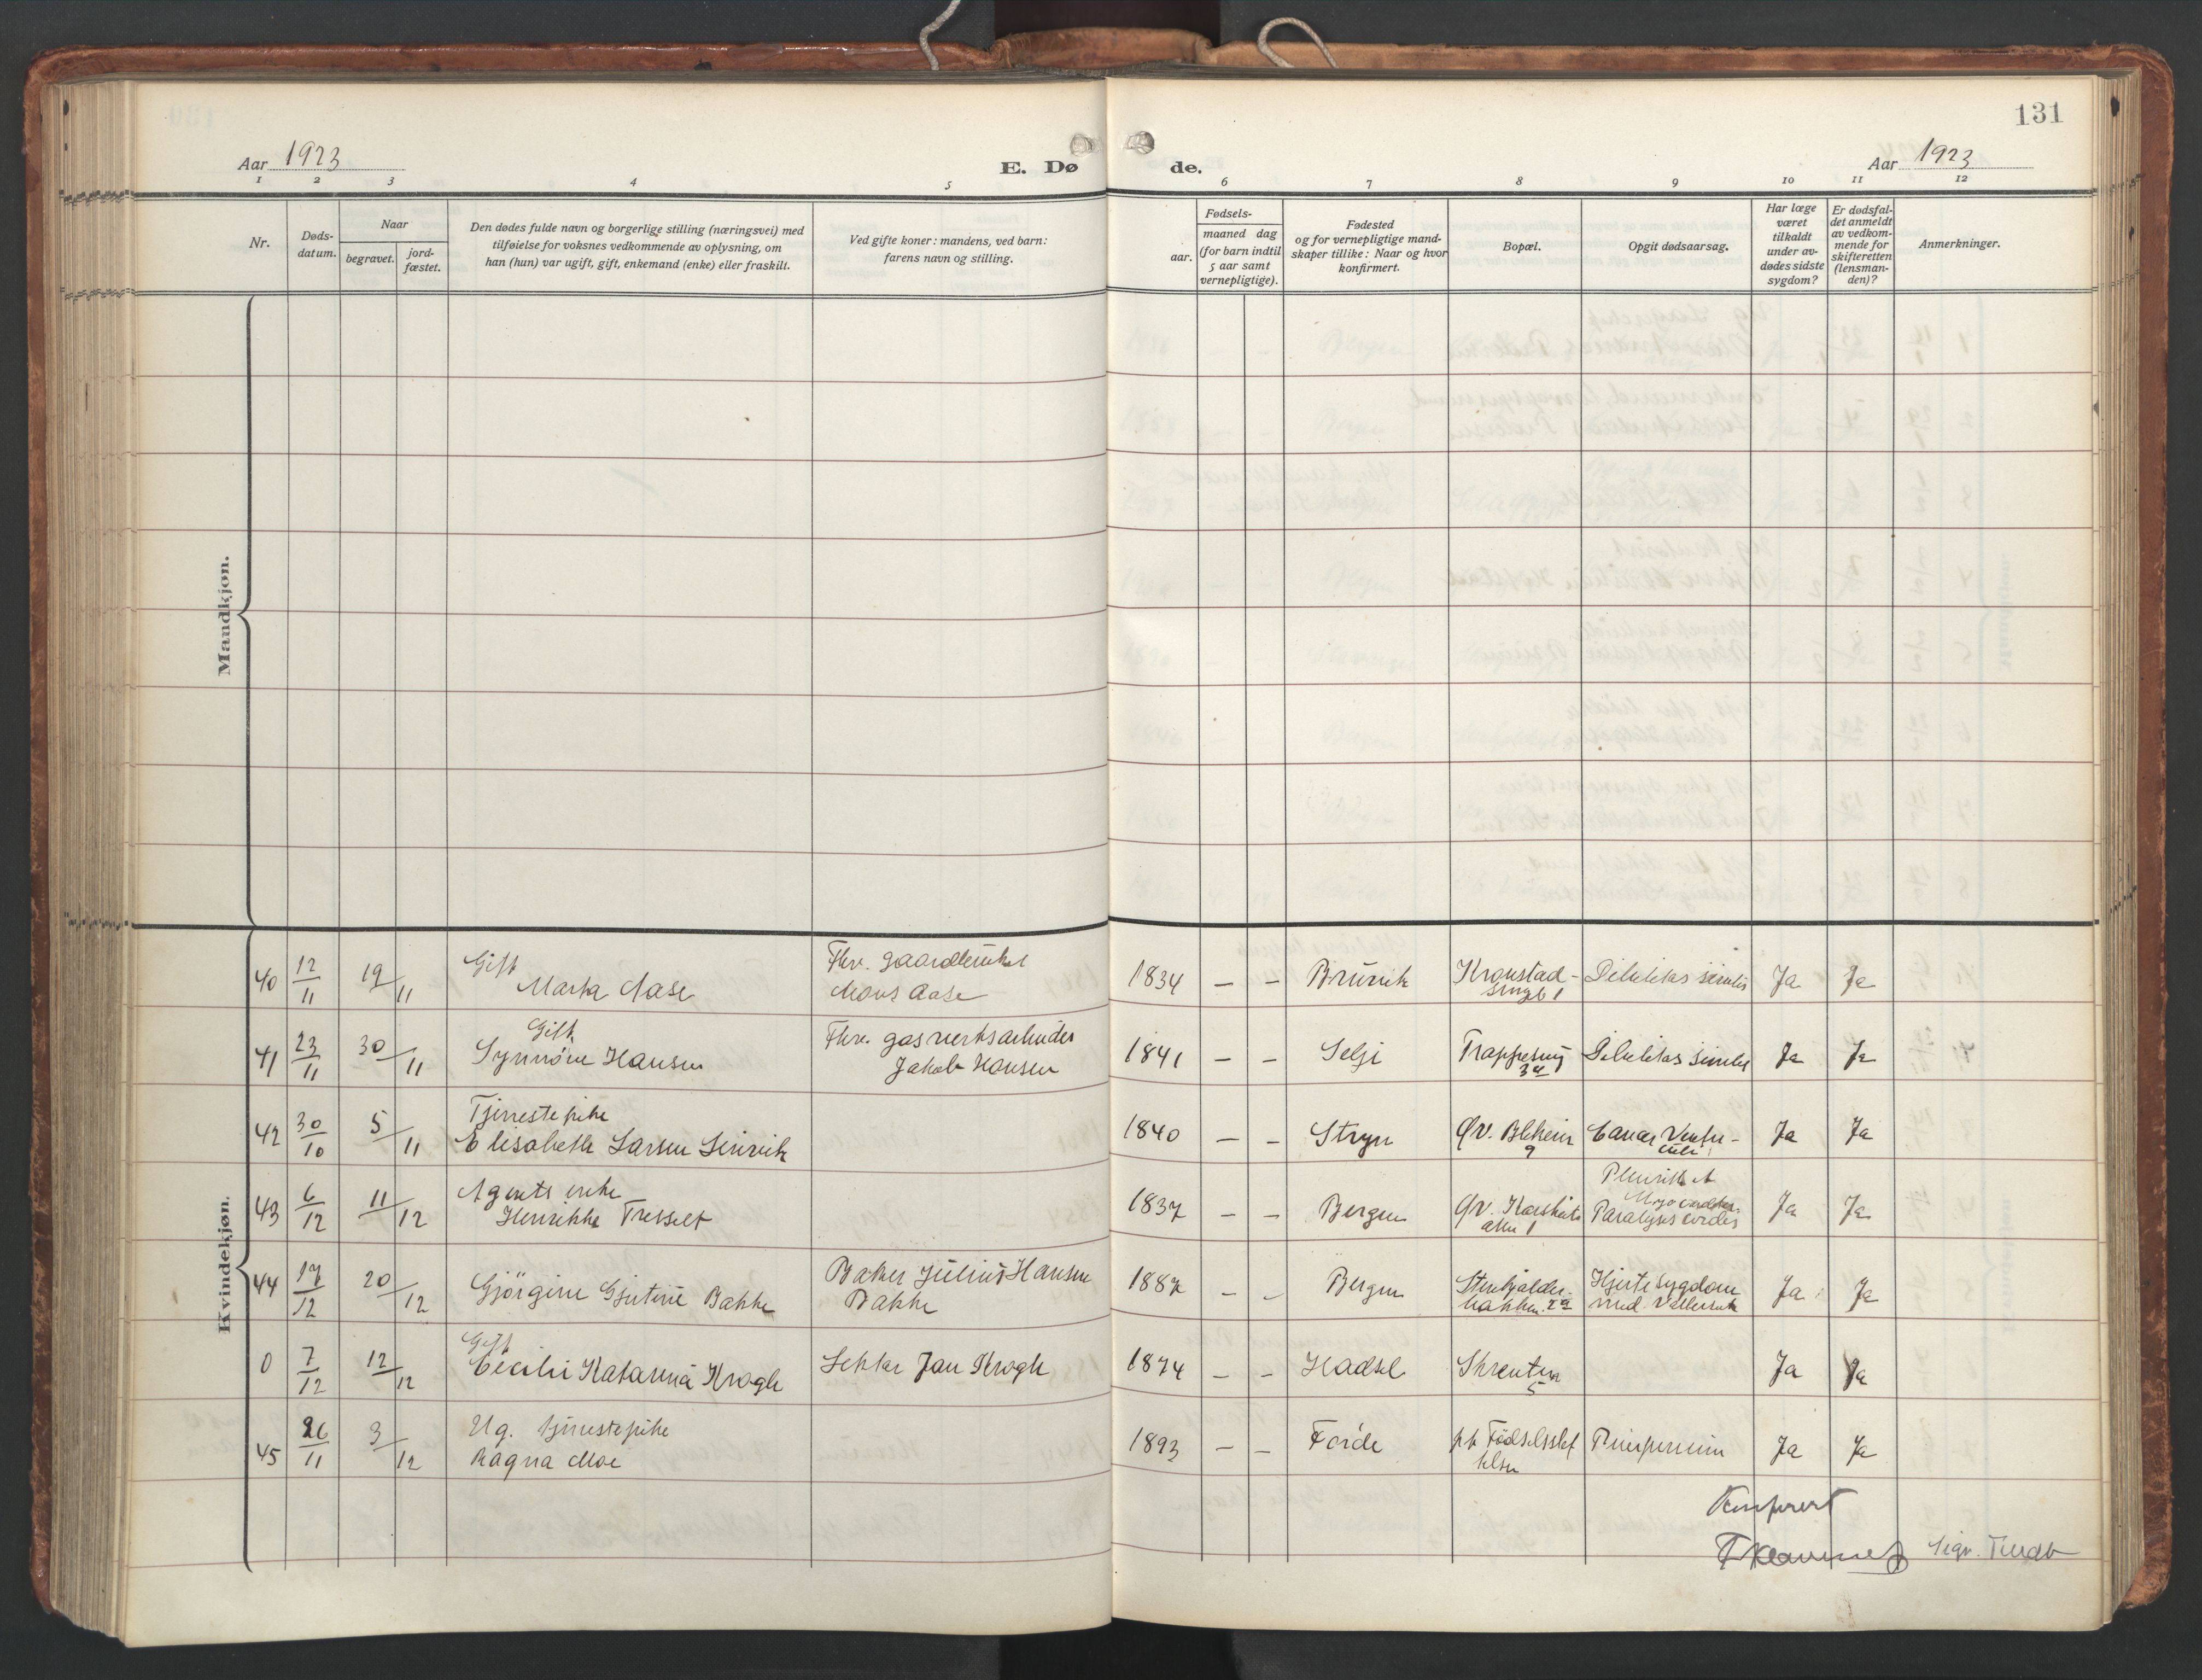 131
Aar 1923
E. Døde.
Aar 1923
1 2 3 4 5 6 7 8 9 10 11 12
Nr.
Døds-
datum.
Naar
begravet.
jord-
fæstet.
Den dødes fulde navn og borgerlige stilling (næringsvei) med
tilføielse for voksnes vedkommende av oplysning, om
han (hun) var ugift, gift, enkemand (enke) eller fraskilt.
Ved gifte koner: mandens, ved barn:
farens navn og stilling.
Fødsels-
aar.
maaned dag
(for barn indtil
5 aar samt
vernepligtige).
Fødested
og for vernepligtige mand-
skaper tillike: Naar og hvor
konfirmert.
Bopæl.
Opgit dødsaarsag.
Har læge
været
tilkaldt
under av-
dødes sidste
sygdom?
Er dødsfal-
det anmeldt
av vedkom-
mende for
skifteretten
(lensman-
den)?
Anmerkninger.
Mandkjøn.
Kvindekjøn.
40 12/11 19/11 Gift
Marta Aase
Fhv. gaardbruker
Mons Aase
1834 – – Bruvik Kronstad-
smug 1
Debilitas senilis Ja Ja
41 23/11 30/11 Gift
Synnöve Hansen
Fhv. gasverksarbeider
Jakob Hansen
1841 – – Selje Trappesmug
3a
Debilitas senilis Ja Ja
42 30/10 5/11 Tjenestepike
Elisabeth Larsen
1840 – – Stryn
9
Cancer Ventri-
culi
Ja Ja
43 6/12 11/12 Agents enke
Henrikke Tresselt
1837 – – Bergen
1
Paralysis cordis
Ja Ja
44 17/12 20/12 Gjörgine Gjertine Bakke
Baker Julius Hansen
Bakke
1887 – – Bergen Stenkjelder-
bakken 2a
Hjertesygdom
med
Ja Ja
0 7/12 12/12 Gift
Cecilie Katarina Krogh
Jan Krogh
1874 – – Hadsel Skrenten
5
Ja Ja
45 26/11 3/12 Ug. tjenestepike
Ragna Moe
1893 – – Førde
Puerperium Ja Ja
Konferert